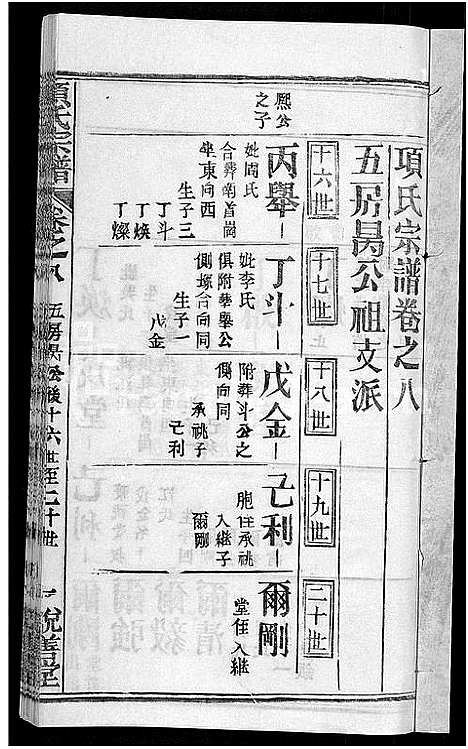 項氏宗譜卷之八
五房昺公祖支派
十六世
十七世
十八世
十九世
二十世
熙公
之子
丙舉
妣周氏
合葬南首崗
坐東向西
生子三
丁斗
丁煥
丁燦
丁斗
妣李氏
俱附葬舉公
側塚合向同
生子一
戊金
戊金
附葬斗公之
側向同
承祧子
己利
己利
胞侄承祧
入繼子
爾剛
爾剛
堂侄入継
項氏宗譜
卷之八
五房昺公後十六世至二十世
一
悅善堂